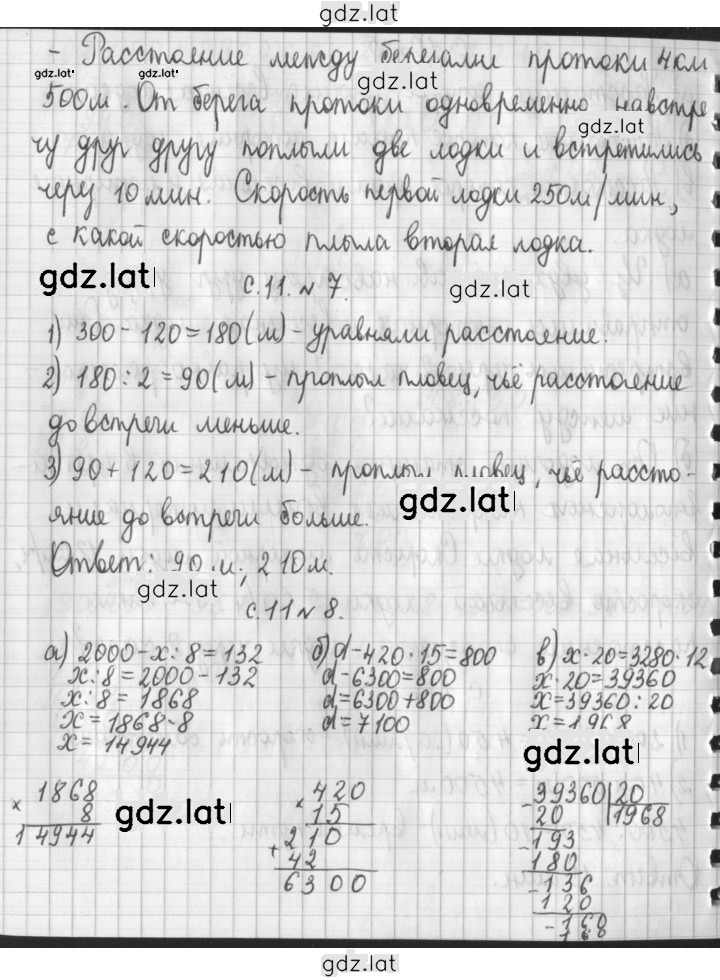 gdz.lat
- Расстояние между берегами протоки 4 км
gdz.lat gdz.lat gdz.lat
500м. От берега протоки одновременно навстре
gdz.lat
чу друг другу поплыли две лодки и встретились
через 10 мин. Скорость первой лодки 250м/мин,
с какой скоростью плыла вторая лодка.
gdz.lat с.11. № 7. gdz.lat
1) 300-120=180(м) - уравняли расстояние.
2) 180:2=90(м) - проплыл пловец, чьё расстояние
до встречи меньше.
3) 90+120=210(м) - проплыл пловец, чьё рассто-
gdz.lat
яние до встречи больше.
Ответ: 90 м; 210м.
gdz.lat
с.11 № 8.
а) 2000-х:8=132 б) d-420·15=800 в) х·20=3280·12
х:8=2000-132 d-6300=800 х·20=39360
х:8=1868 d=6300+800 х=39360:20
х=1868·8 d=7100 х=1968
х=14944
gdz.lat
1868 420 39360 20
× 8 × 15 - 20 1968
gdz.lat
14944 210 - 193
+ 42 180
6300 - 136
120
- 168
168
gdz.lat